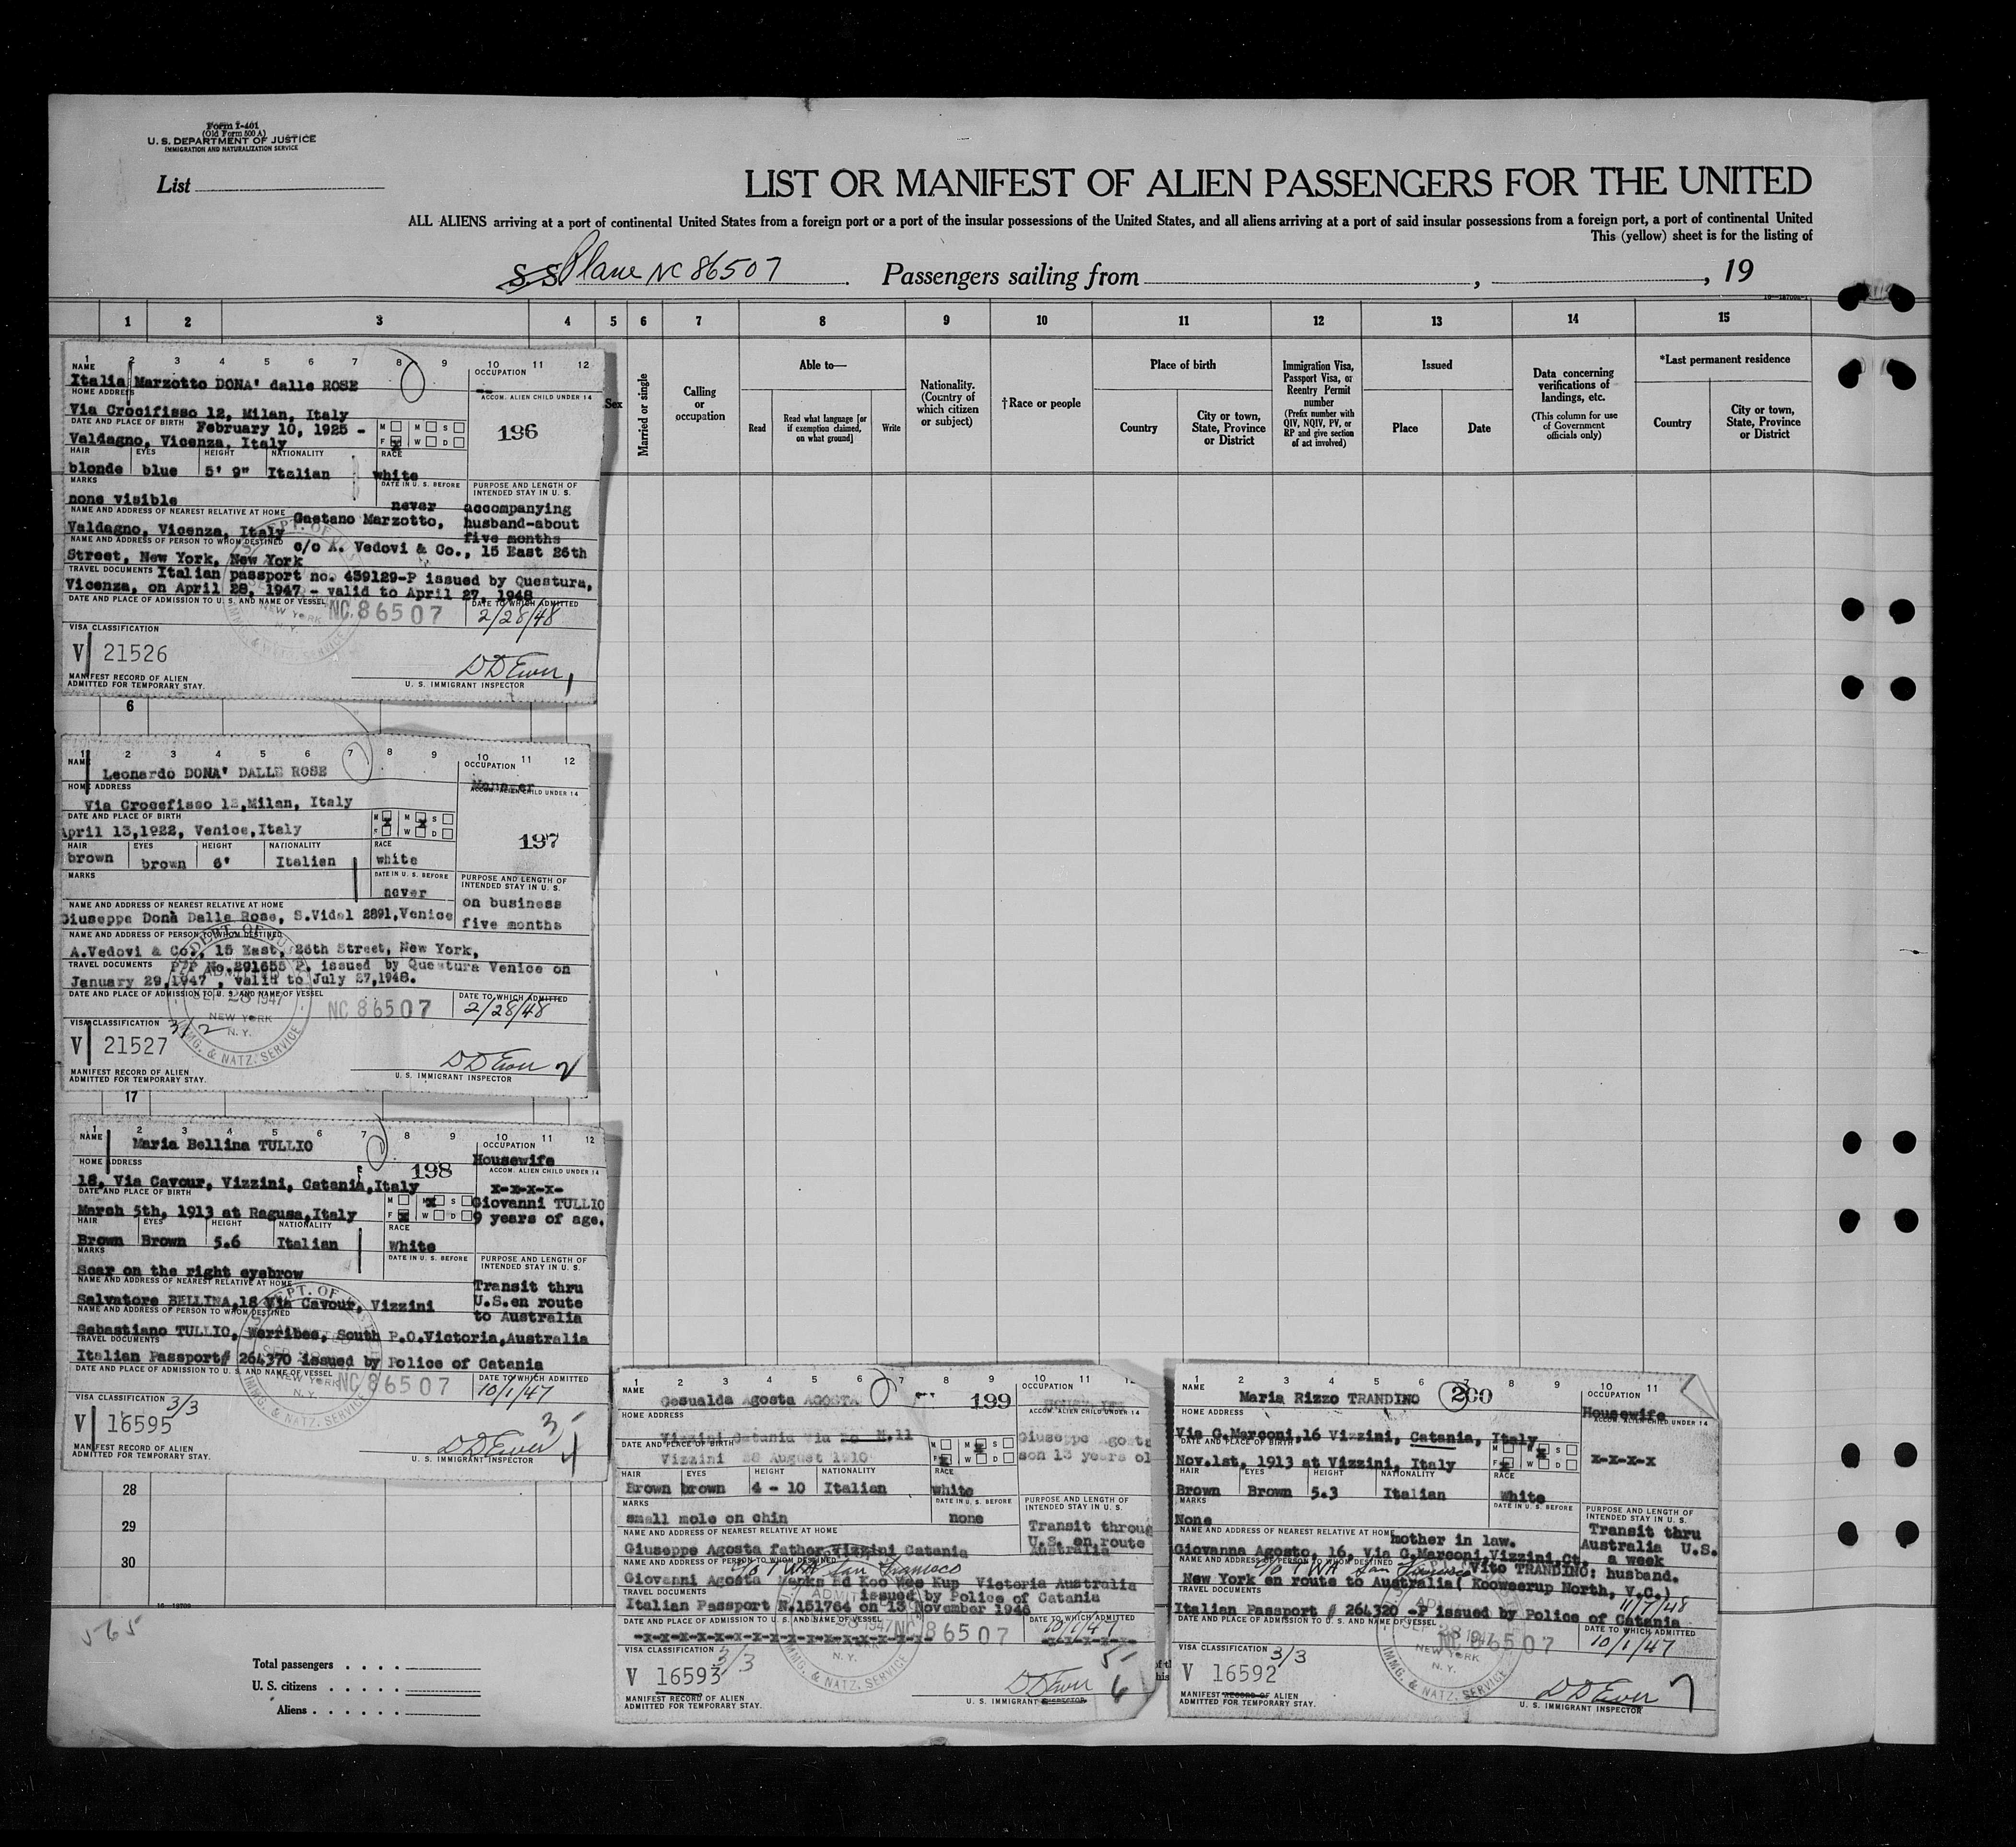 Form I-401
(Old Form 500 A)
U. S. DEPARTMENT OF JUSTICE
IMMIGRATION AND NATURALIZATION SERVICE
List
LIST OR MANIFEST OF ALIEN PASSENGERS FOR THE UNITED
ALL ALIENS arriving at a port of continental United States from a foreign port or a port of the insular possessions of the United States, and all aliens arriving at a port of said insular possessions from a foreign port, a port of continental United
This (yellow) sheet is for the listing of
S. S. Plane NC 86507 Passengers sailing from , , 19
1 2 3 4 5 6 7 8 9 10 11 12 13 14 15
Sex
Married or single
Calling or occupation
Able to—
Read
Read what language [or if exemption claimed, on what ground]
Write
Nationality. (Country of which citizen or subject)
†Race or people
Place of birth
Country
City or town, State, Province or District
Immigration Visa, Passport Visa, or Reentry Permit number
(Prefix number with QIV, NQIV, PV, or RP and give section of act involved)
Issued
Place
Date
Data concerning verifications of landings, etc.
(This column for use of Government officials only)
*Last permanent residence
Country
City or town, State, Province or District
1 2 3 4 5 6 7 8 9 10 11 12
NAME
OCCUPATION
Italia Marzotto DONA' dalle ROSE
--
HOME ADDRESS
ACCOM. ALIEN CHILD UNDER 14
Via Crocifisso 12, Milan, Italy
DATE AND PLACE OF BIRTH February 10, 1925 -
M M S
196
Valdagno, Vicenza, Italy
F x W D
HAIR EYES HEIGHT NATIONALITY RACE
blonde blue 5' 9" Italian white
MARKS
DATE IN U. S. BEFORE
PURPOSE AND LENGTH OF INTENDED STAY IN U. S.
none visible
never
accompanying
NAME AND ADDRESS OF NEAREST RELATIVE AT HOME Gaetano Marzotto,
husband-about
Valdagno, Vicenza, Italy
five months
NAME AND ADDRESS OF PERSON TO WHOM DESTINED c/o A. Vedovi & Co., 15 East 26th
Street, New York, New York
TRAVEL DOCUMENTS Italian passport no. 459129-P issued by Questura,
Vicenza, on April 28, 1947 - valid to April 27, 1948
DATE AND PLACE OF ADMISSION TO U. S. AND NAME OF VESSEL
DATE TO WHICH ADMITTED
NC 86507
2/28/48
VISA CLASSIFICATION
V 21526
DD Ewer 1
MANIFEST RECORD OF ALIEN
ADMITTED FOR TEMPORARY STAY.
U. S. IMMIGRANT INSPECTOR
6
1 2 3 4 5 6 7 8 9 10 11 12
NAME
OCCUPATION
Leonardo DONA' DALLE ROSE
Manager
HOME ADDRESS
ACCOM. ALIEN CHILD UNDER 14
Via Crocefisso 12,Milan, Italy
DATE AND PLACE OF BIRTH
M x M x S
April 13,1922, Venice,Italy
F W D
197
HAIR EYES HEIGHT NATIONALITY RACE
brown brown 6' Italian white
MARKS
DATE IN U. S. BEFORE
PURPOSE AND LENGTH OF INTENDED STAY IN U. S.
never
on business
NAME AND ADDRESS OF NEAREST RELATIVE AT HOME
Giuseppe Donà Dalle Rose, S.Vidal 2891,Venice
five months
NAME AND ADDRESS OF PERSON TO WHOM DESTINED
A.Vedovi & Co., 15 East, 26th Street, New York,
TRAVEL DOCUMENTS P/P No.291655 P. issued by Questura Venice on
January 29,1947 , valid to July 27,1948.
DATE AND PLACE OF ADMISSION TO U. S. AND NAME OF VESSEL
DATE TO WHICH ADMITTED
NC 86507
2/28/48
DEPT. OF
ADMITTED
SEP 28 1947
NEW YORK
N. Y.
IMMG. & NATZ. SERVICE
VISA CLASSIFICATION 3/2
V 21527
DD Ewer 2
MANIFEST RECORD OF ALIEN
ADMITTED FOR TEMPORARY STAY.
U. S. IMMIGRANT INSPECTOR
17
1 2 3 4 5 6 7 8 9 10 11 12
NAME
OCCUPATION
Maria Bellina TULLIO
198
Housewife
HOME ADDRESS
ACCOM. ALIEN CHILD UNDER 14
18, Via Cavour, Vizzini, Catania,Italy
x-x-x-x-
DATE AND PLACE OF BIRTH
M M x S
Giovanni TULLIO
March 5th, 1913 at Ragusa,Italy
F x W D
9 years of age.
HAIR EYES HEIGHT NATIONALITY RACE
Brown Brown 5.6 Italian White
MARKS
DATE IN U. S. BEFORE
PURPOSE AND LENGTH OF INTENDED STAY IN U. S.
Scar on the right eyebrow
NAME AND ADDRESS OF NEAREST RELATIVE AT HOME
Transit thru
Salvatore BELLINA,18 Via Cavour, Vizzini
U.S.en route
NAME AND ADDRESS OF PERSON TO WHOM DESTINED
to Australia
Sebastiano TULLIO, Werribee, South P.O.Victoria,Australia
TRAVEL DOCUMENTS
Italian Passport# 264370 issued by Police of Catania
DATE AND PLACE OF ADMISSION TO U. S. AND NAME OF VESSEL
DATE TO WHICH ADMITTED
NC 86507
10/1/47
VISA CLASSIFICATION 3/3
V 16595
3-
DD Ewer 4
MANIFEST RECORD OF ALIEN
ADMITTED FOR TEMPORARY STAY.
U. S. IMMIGRANT INSPECTOR
28
29
30
1 2 3 4 5 6 7 8 9 10 11 12
NAME
OCCUPATION
Gesualda Agosta AGOSTA
199
HOME ADDRESS
ACCOM. ALIEN CHILD UNDER 14
Vizzini Catania Via N.11
Giuseppe Agosta
DATE AND PLACE OF BIRTH
M M x S
Vizzini 28 August 1910
F x W D
son 13 years ol
HAIR EYES HEIGHT NATIONALITY RACE
Brown brown 4 - 10 Italian white
MARKS
DATE IN U. S. BEFORE
PURPOSE AND LENGTH OF INTENDED STAY IN U. S.
small mole on chin
none
NAME AND ADDRESS OF NEAREST RELATIVE AT HOME
Transit throug
U.S. en route
Giuseppe Agosta father Vizzini Catania
Australia
NAME AND ADDRESS OF PERSON TO WHOM DESTINED c/o TWA San Francisco
Giovanni Agosta Yanks Rd Koo Wee Kup Victoria Australia
TRAVEL DOCUMENTS
issued by Police of Catania
Italian Passport N.151764 on 13 November 1946
DATE AND PLACE OF ADMISSION TO U. S. AND NAME OF VESSEL
DATE TO WHICH ADMITTED
NC 86507
10/1/47
VISA CLASSIFICATION 3/3
V 16593
5-
DD Ewer 6
MANIFEST RECORD OF ALIEN
ADMITTED FOR TEMPORARY STAY.
U. S. IMMIGRANT INSPECTOR
1 2 3 4 5 6 7 8 9 10 11
NAME
OCCUPATION
Maria Rizzo TRANDINO
200
Housewife
HOME ADDRESS
ACCOM. ALIEN CHILD UNDER 14
Via G.Marconi,16 Vizzini, Catania, Italy
DATE AND PLACE OF BIRTH
M M x S
Nov.1st, 1913 at Vizzini, Italy
F x W D
x-x-x-x
HAIR EYES HEIGHT NATIONALITY RACE
Brown Brown 5.3 Italian White
MARKS
DATE IN U. S. BEFORE
PURPOSE AND LENGTH OF INTENDED STAY IN U. S.
None
NAME AND ADDRESS OF NEAREST RELATIVE AT HOME mother in law.
Transit thru
Australia U.S.
Giovanna Agosto, 16, Via G.Marconi,Vizzini,Ct.
a week
NAME AND ADDRESS OF PERSON TO WHOM DESTINED c/o TWA San Francisco Vito TRANDINO: husband.
New York en route to Australia( Kooweerup North, V.C.)
TRAVEL DOCUMENTS
11/7/48
Italian Passport # 264320 -P issued by Police of Catania
DATE AND PLACE OF ADMISSION TO U. S. AND NAME OF VESSEL
DATE TO WHICH ADMITTED
NC 86507
10/1/47
VISA CLASSIFICATION 3/3
V 16592
DD Ewer 7
MANIFEST RECORD OF ALIEN
ADMITTED FOR TEMPORARY STAY.
U. S. IMMIGRANT INSPECTOR
565
Total passengers . . . .
U. S. citizens . . . . .
Aliens . . . . . .